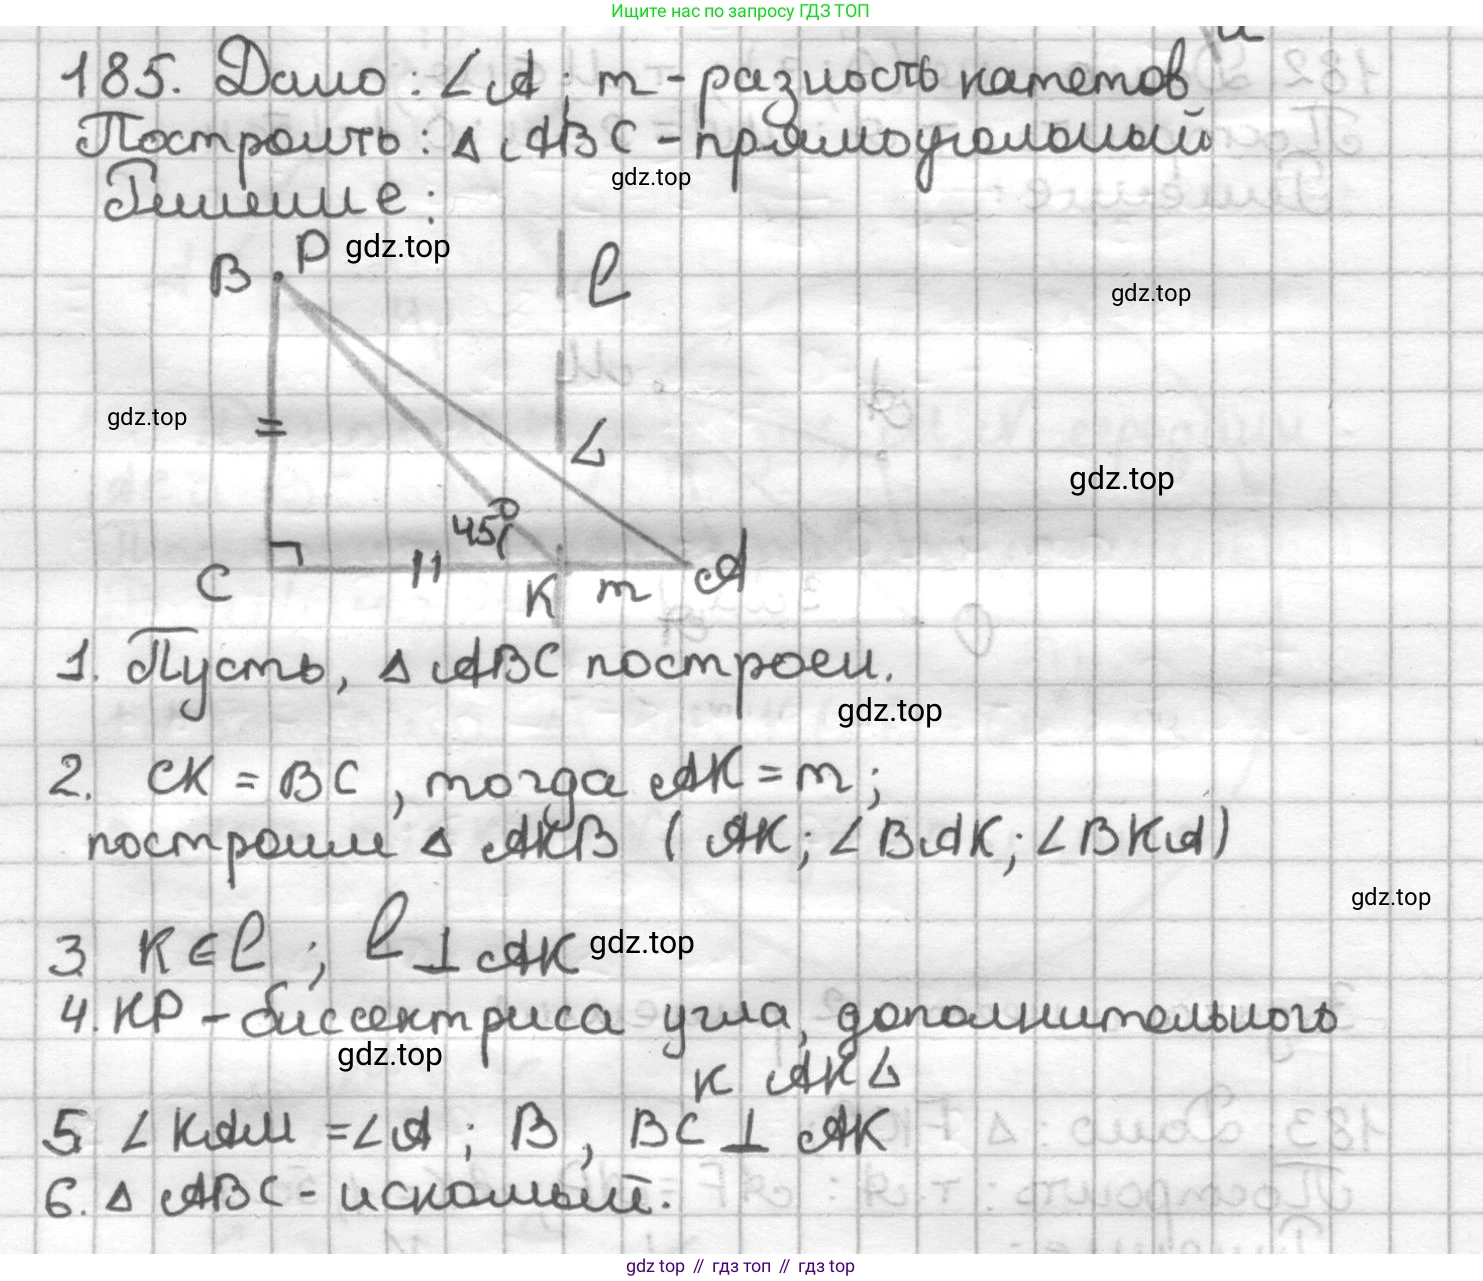 Ищите нас по запросу ГДЗ ТОП
185. Дано: ∠A; m - разность катетов
Построить: △ ABC - прямоугольный
gdz.top
Решение:
B P gdz.top l
gdz.top
gdz.top
L
gdz.top
45°
C K m A
1. Пусть, △ ABC построен.
gdz.top
2. CK = BC, тогда AK = m;
построим △ AKB (AK; ∠BAK; ∠BKA)
gdz.top
3. K ∈ l; l ⊥ AK gdz.top
4. KP - биссектриса угла, дополнительного
gdz.top
к AKL
5. ∠KAM = ∠A; B, BC ⊥ AK
6. △ ABC - искомый.
gdz top // гдз топ // гдз top